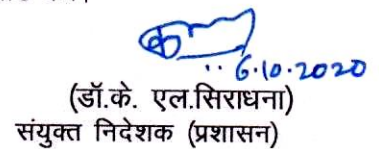 6.10.2020
(डॉ.के. एल.सिराधना)
संयुक्त निदेशक (प्रशासन)